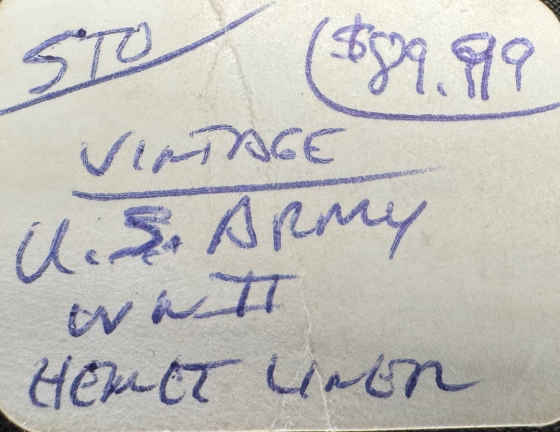 STO $89.99
VINTAGE
U.S. ARMY
WW II
HELMET LINER